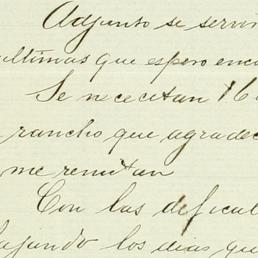 Adjunto se servir
ultimas que espero encu
Se nececitan 16
rancho que agradec
me remitan
Con las deficul
bajando los dias que